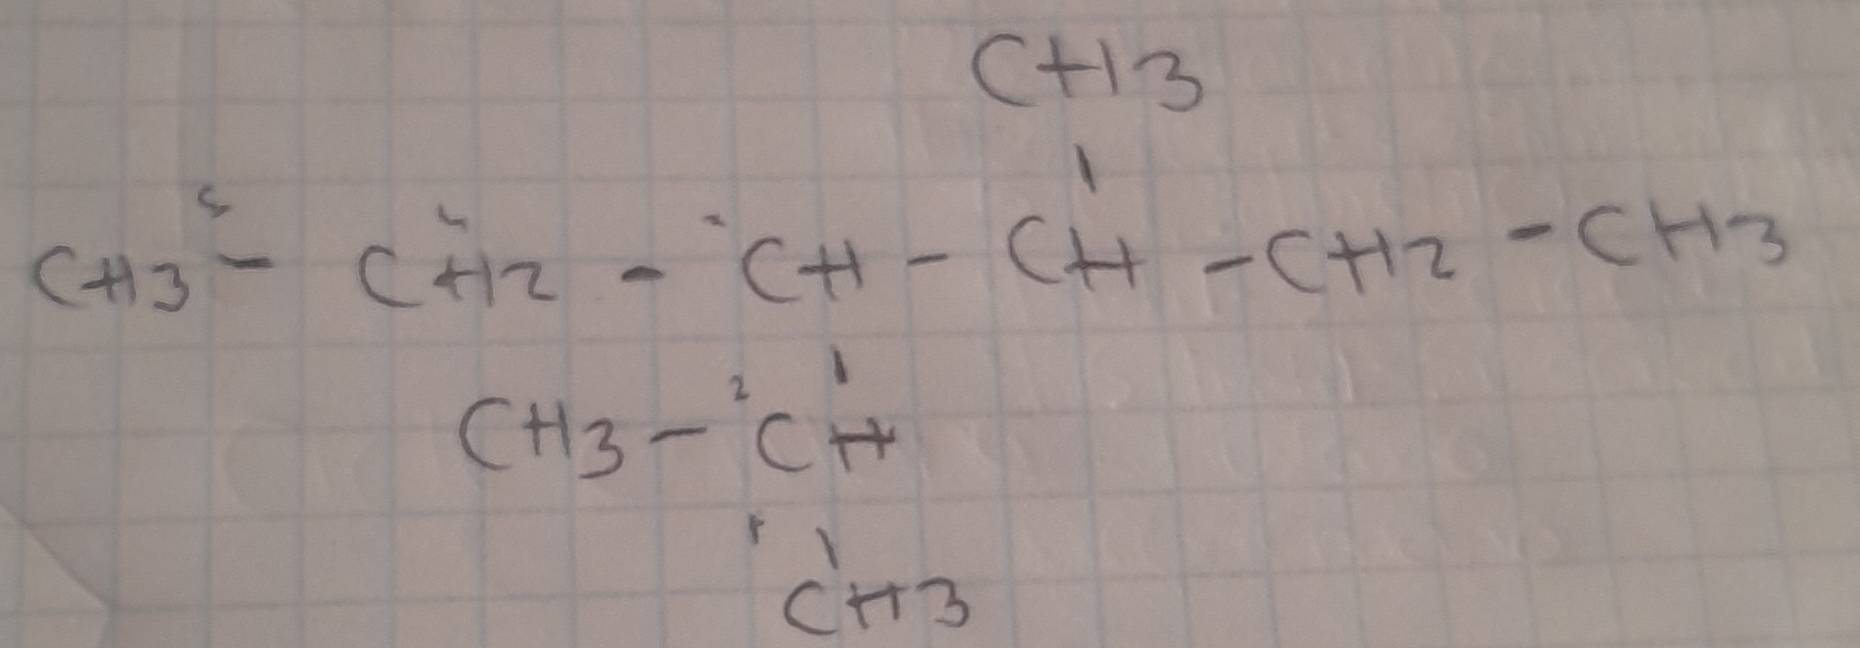 CH3
CH3 - CH2 - CH - CH - CH2 - CH3
CH3 - 2 CH
CH3